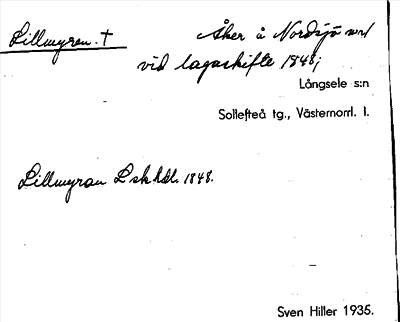 Lillmyren. † Åker å Nordsjö
vid lagaskifte 1848;
Långsele s:n
Sollefteå tg., Västernorrl. l.
Lillmyran L sk hdl. 1848.
Sven Hiller 1935.